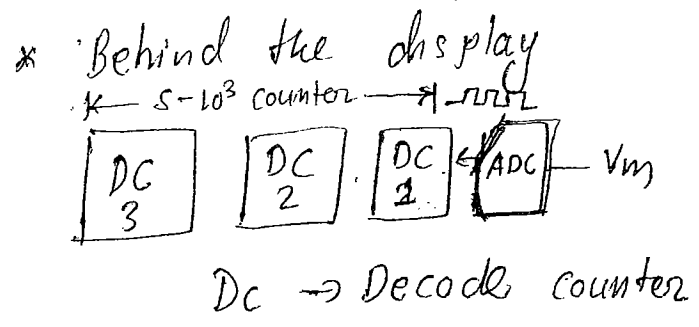 * Behind the display
5-10³ counter
DC 3 DC 2 . DC 1 ADC Vm
Dc → Decode counter